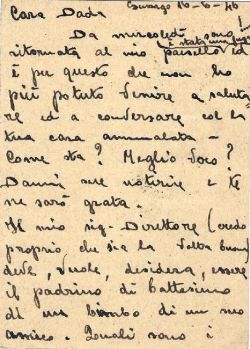 Cara Dada
16-6-46
Da mercoledì sono
è stata una fuga
ritornata al mio paesello ed
è per questo che non ho
più potuto venire a saluta
re ed a conversare col la
tua cara ammalata -
Come sta? Meglio Voco?
Dammi sue notizie e te
ne sarò grata.
Il mio sig. Direttore (credo
proprio che sia la volta buona)
deve, vuole, desidera, essere
il padrino di battesimo
di un bimbo di un suo
amico. Quali sono i